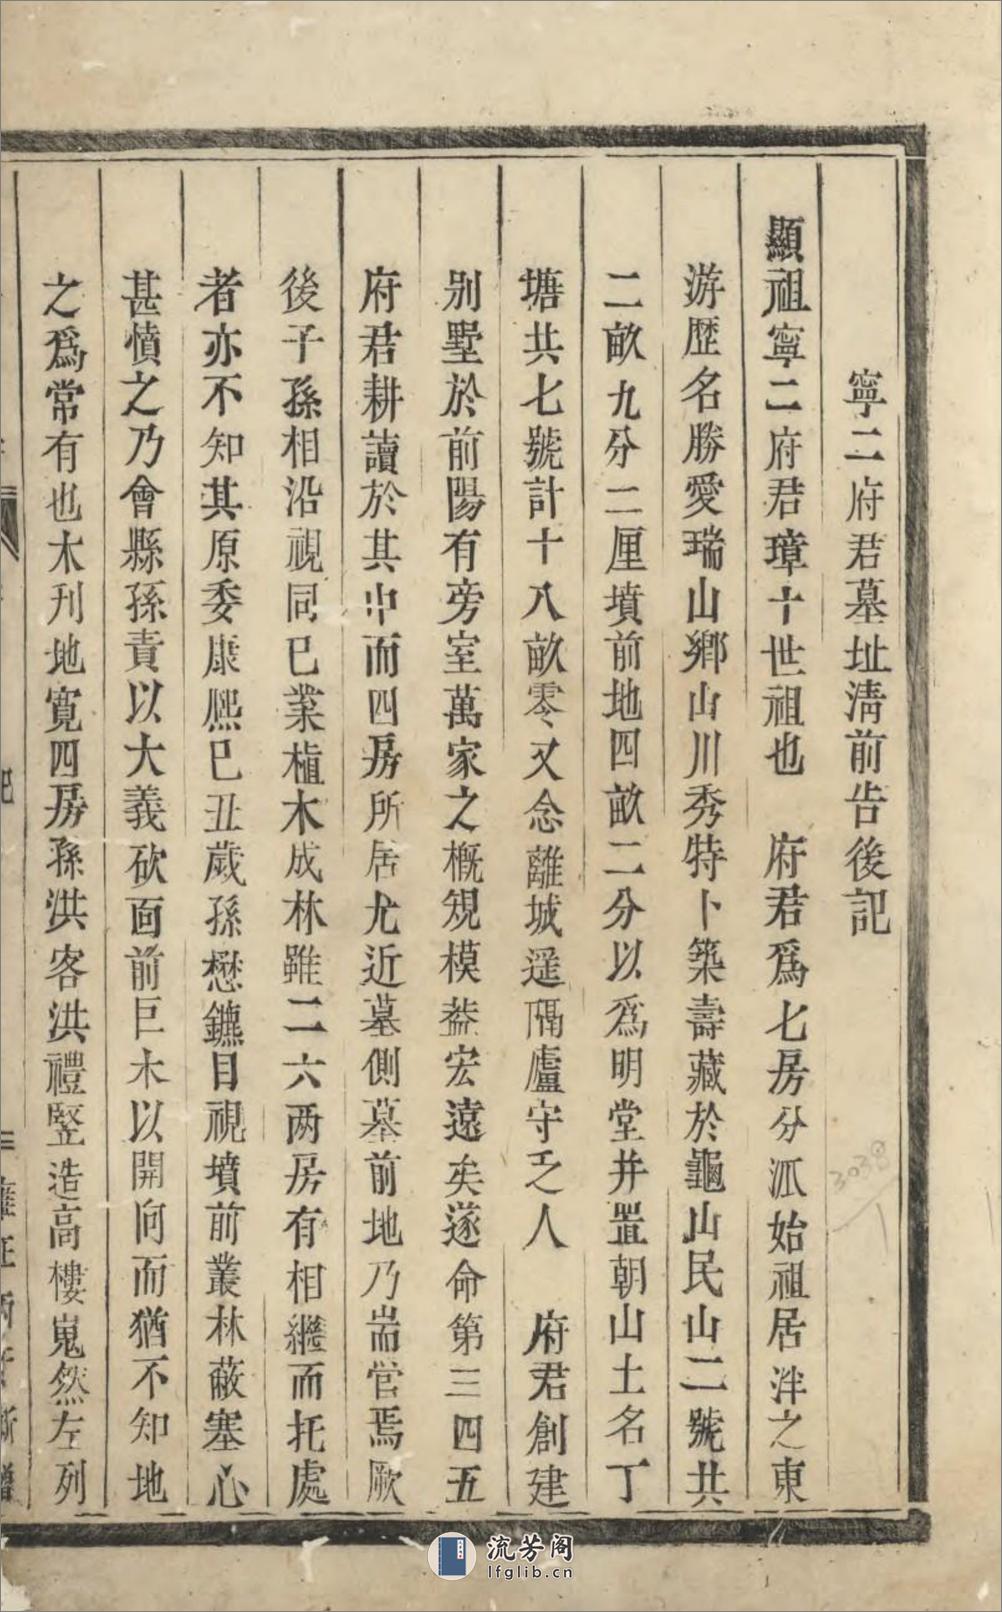 寧二府君墓址清前告後記
顯祖寧二府君璋十世祖也 府君爲七房分派始祖居泮之東
游歷名勝愛瑞山鄉山川秀特卜築壽藏於龜山民山二號共
二畝九分二厘墳前地四畝二分以爲明堂并置朝山土名丁
塘共七號計十八畝零又念離城遥隔廬守乏人 府君創建
别墅於前陽有旁室萬家之概規模葢宏遠矣遂命第三四五
府君耕讀於其中而四房所居尤近墓側墓前地乃耑官焉厥
後子孫相沿視同已業植木成林雖二六两房有相繼而托處
者亦不知其原委康熙已丑歲孫懋鑣目視墳前叢林蔽塞心
甚憤之乃會縣孫責以大義砍靣前巨木以開向而猶不知地
之爲常有也木刋地寬四房孫洪客洪禮竪造高樓嵬然左列
記
雍正
新譜
3038
流芳阁
lfglib.cn